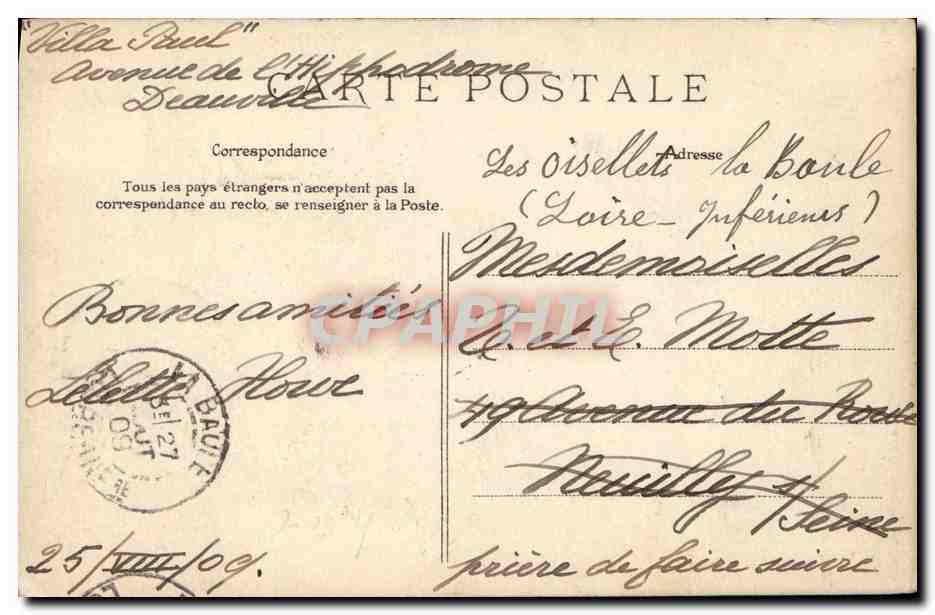 "Villa Paul"
Avenue de l'Hippodrome
Deauville
CARTE POSTALE
Correspondance
Tous les pays étrangers n'acceptent pas la
correspondance au recto, se renseigner à la Poste.
Bonnes amitiés
Howe
LA BAULE
27
AOUT
09
25/VIII/09.
Adresse
Les Oisellets la Baule
(Loire-Inférieure)
Mesdemoiselles
et E. Motte
49 Avenue du Roule
Neuilly s/Seine
prière de faire suivre
CPAPHIL